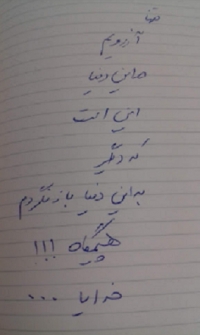 تنها
آرزویم
در این دنیا
این است
که دگر
به این دنیا باز نگردم
هیچگاه !!!
خدایا ...